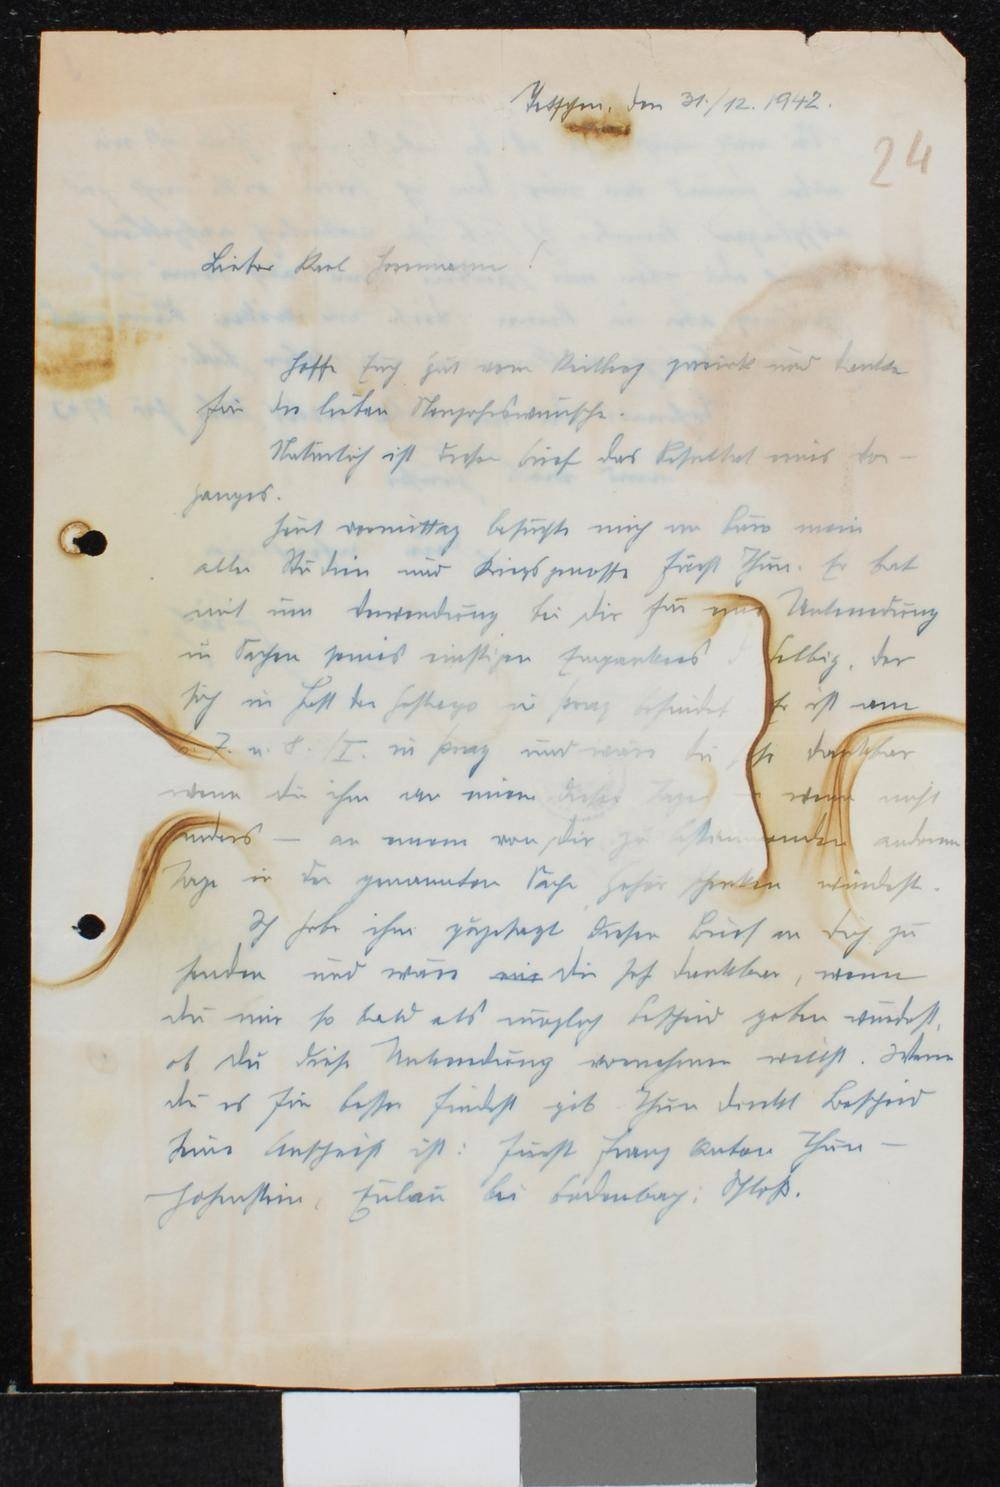 Tetschen, den 31./12. 1942.
24
Lieber Karl Hermann!
Hoffe Euch gut vom zurück und danke
für die lieben Neujahrswünsche.
Natürlich ist dieser Brief das Resultat eines Vor-
ganges.
Heut vormittag besuchte mich im Büro mein
alter Studien und Kriegsgenosse Fürst Thun. Er bat
mich um Verwendung bei Dir für eine Unterredung
in Sachen seines einstigen Selbig, der
sich in Haft der Gestapo in Prag befindet. Er ist am
7. u. 8./I. in Prag und wäre Dir dankbar
wenn Du ihm an einem dieser Tage – wenn nicht
anders – an einem von Dir zu bestimmenden anderen
Tage in der genannten Sache Gehör schenken würdest.
Ich habe ihm zugesagt diesen Brief an Dich zu
senden und wäre Dir sehr dankbar, wenn
Du mir so bald als möglich Bescheid geben würdest,
ob Du diese Unterredung vornehmen willst. Wenn
Du es für besser findest gib Thun direkt Bescheid
Seine Anschrift ist: Fürst Franz Anton Thun –
Hohenstein, Eulau bei Bodenbach, Schloß.